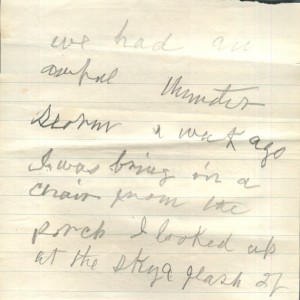 we had an
awful thunder
storm a week ago
I was bring in a
chair from the
porch I looked up
at the sky a flash of